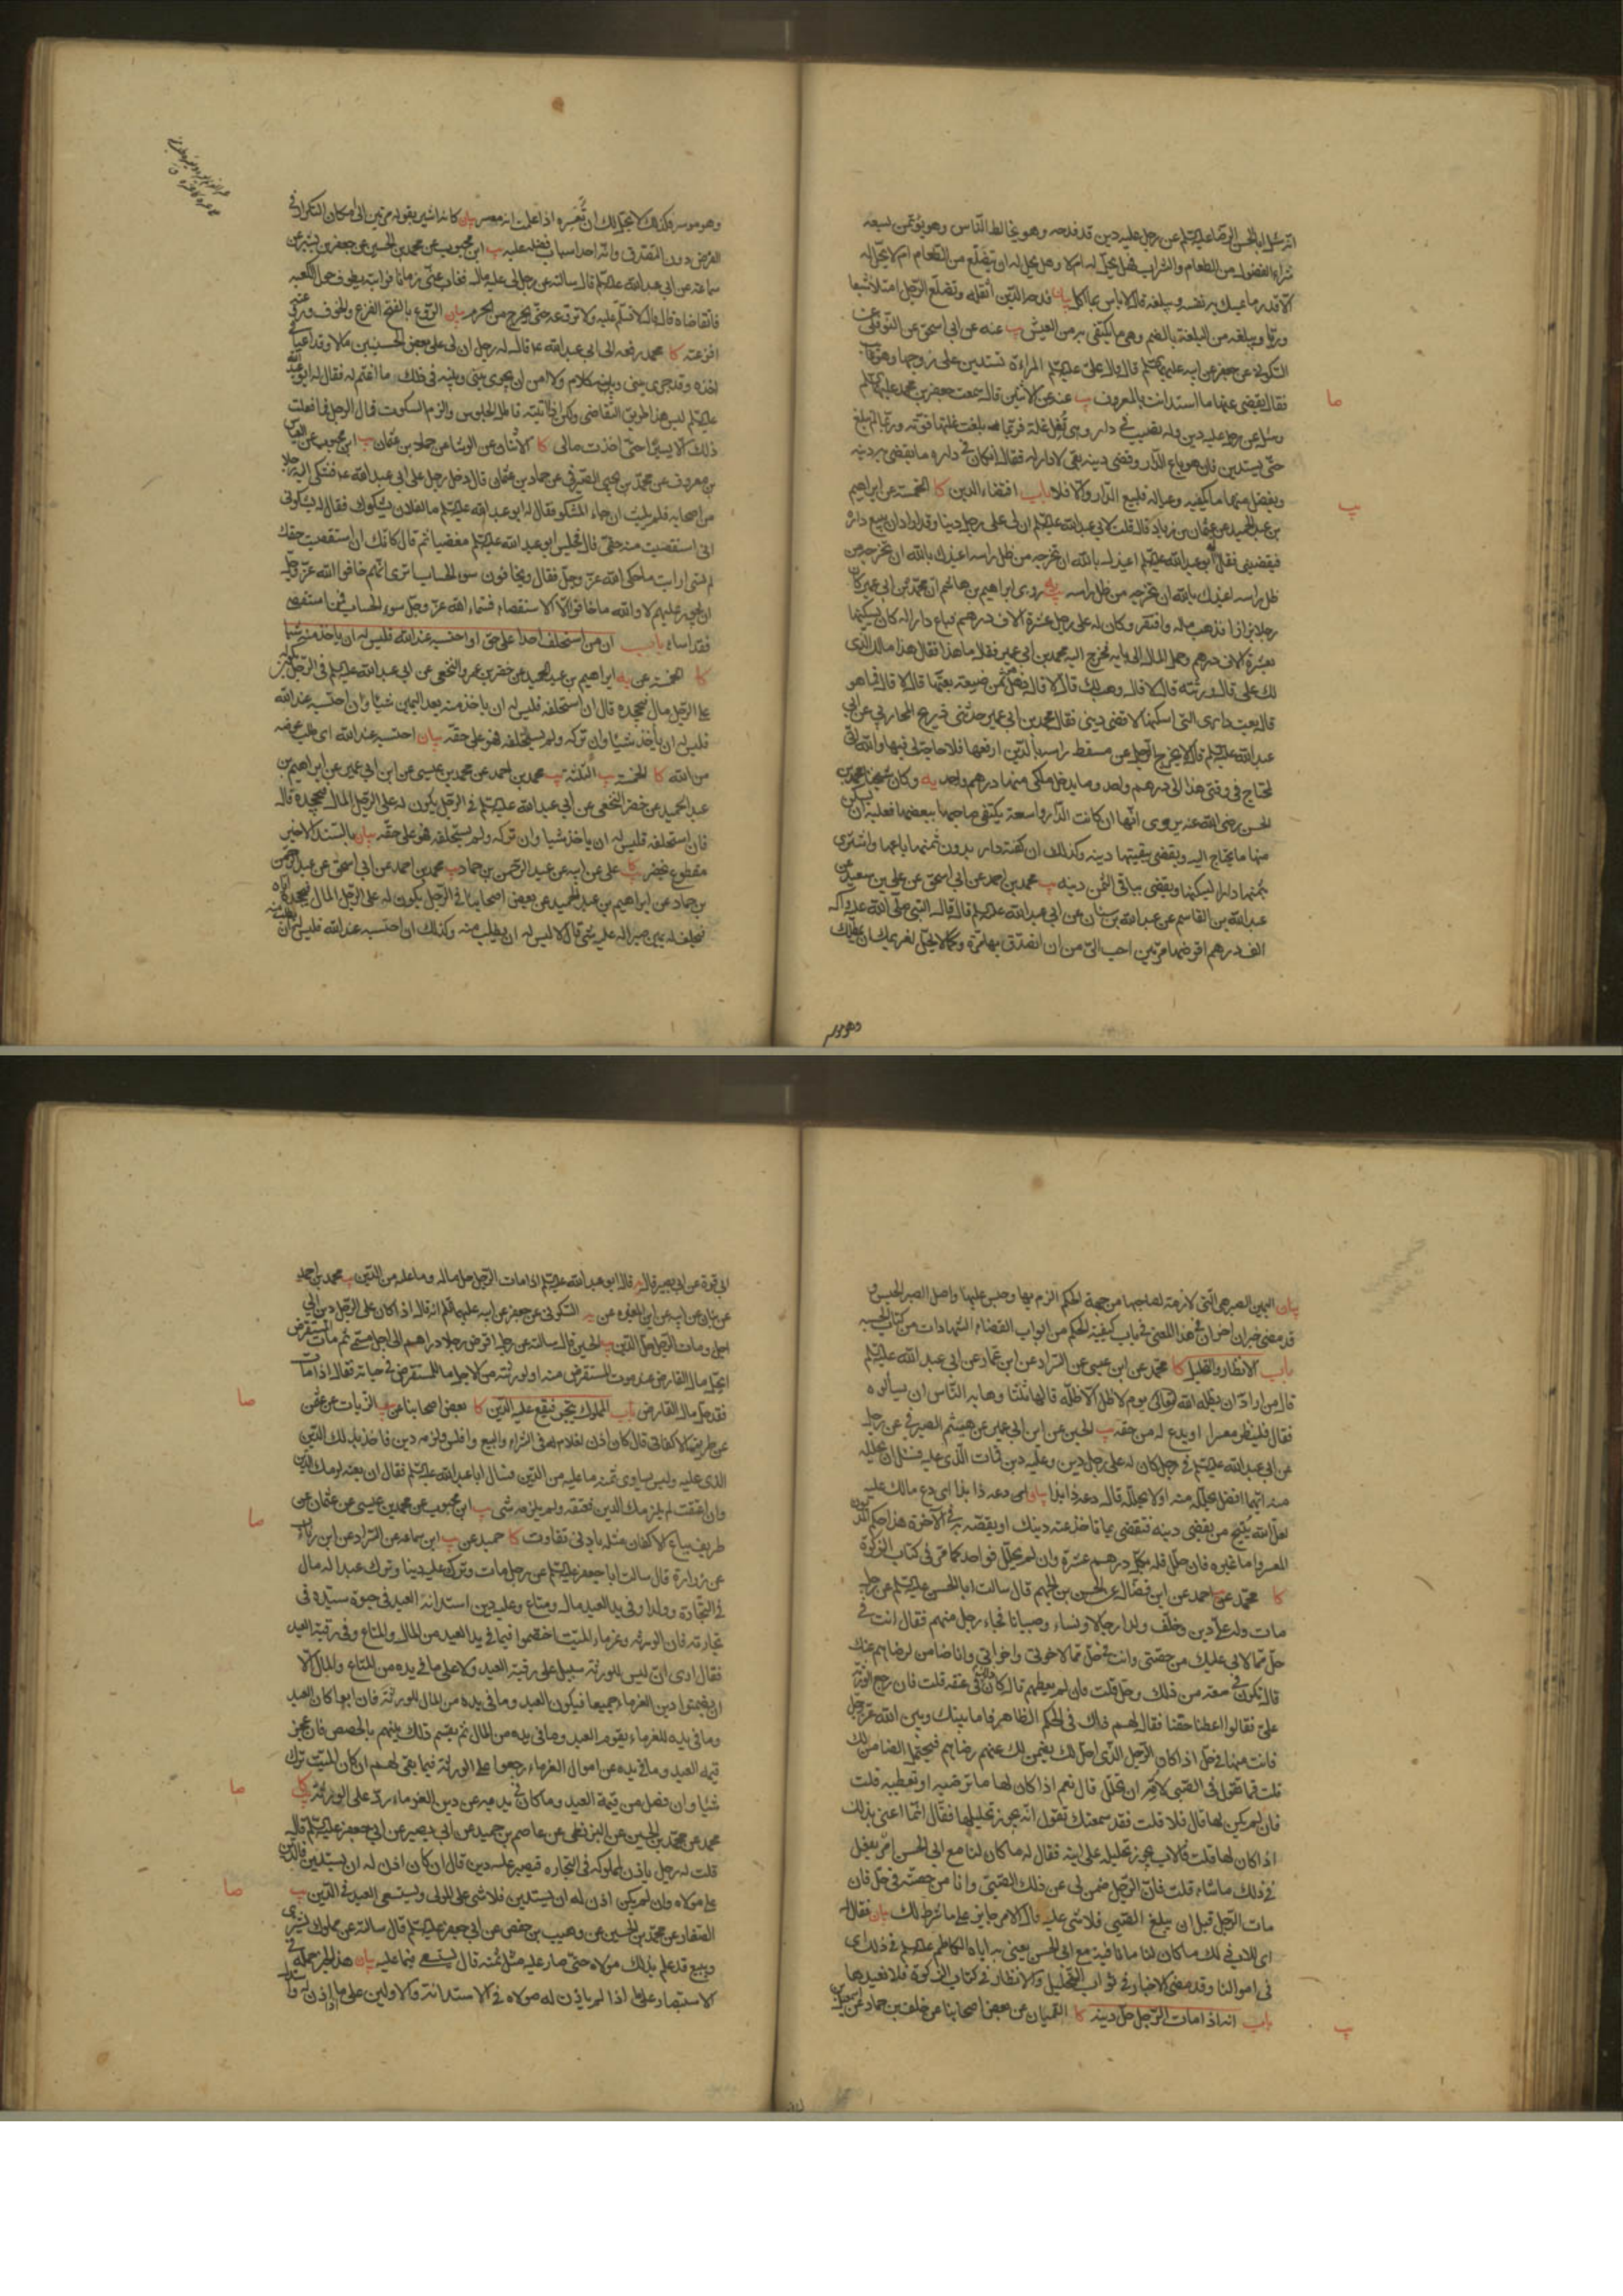 انه سئل ابا الحسن الرضا عليه السلم عن رجل عليه دين قد فدحه وهو يخالط الناس وهو يؤتمن يسعه
شراء الفضول من الطعام والشراب فهل يحل له ام لا وهل يحل له ان يتضلع من الطعام ام لا يحل له
الا قدر ما يمسك به نفسه ويبلغه قال لا باس بما اكل بيان فدحه الدين أثقله وتضلع الرجل امتلأ شبعا
وريا ويبلغه من البلغة بالضم وهي ما يكتفى به من العيش يب عنه عن ابي اسحق عن النوفلي عن
السكوني عن جعفر عن ابيه عليهما السلم قال قال علي عليه السلم المراءة تستدين على زوجها وهو غايب
فقال يقضي عنها ما استدانت بالمعروف يب عنه عن الاثنين قال سمعت جعفر بن محمد عليهما السلم
وسئل عن رجل عليه دين وله نصيب في دار وهي تغل غلة فربما بلغت غلتها قوته وربما لم تبلغ
حتى يستدين فان هو باع الدار وقضى دينه بقي لا دار له فقال ان كان في داره ما يقضي به دينه
ويفضل منها ما يكفيه وعياله فليبع الدار والا فلا باب اقتضاء الدين كا الخمسة عن ابراهيم
بن عبد الحميد عن عثمان بن زياد قال قلت لابي عبد الله عليه السلم ان لي على رجل دينا وقد اراد ان يبيع داره
فيقضيني فقال ابو عبد الله عليه السلم اعيذك بالله ان تخرجه من ظل راسه اعيذك بالله ان تخرجه من
ظل راسه اعيذك بالله ان تخرجه من ظل راسه يه روى ابراهيم بن هاشم ان محمد بن ابي عمير كان
رجلا بزازا فذهب ماله وافتقر وكان له على رجل عشرة الاف درهم فباع دارا له كان يسكنها
بعشرة الاف درهم وحمل المال الى بابه فخرج اليه محمد بن ابي عمير فقال ما هذا فقال هذا مالك الذي
لك علي قال ورثته قال لا قال وهب لك قال لا قال فهل هو ثمن ضيعة بعتها قال لا قال فما هو
قال بعت داري التي اسكنها لاقضي ديني فقال محمد بن ابي عمير حدثني ذريح المحاربي عن ابي
عبد الله عليه السلم قال لا يخرج الرجل عن مسقط راسه بالدين ارفعها فلا حاجة لي فيها والله اني
لمحتاج في وقتي هذا الى درهم واحد وما يدخل ملكي منها درهم واحد يه وكان شيخنا محمد بن
الحسن رضي الله عنه يروي انها ان كانت الدار واسعة يكتفي صاحبها ببعضها فعليه ان يسكن
منها ما يحتاج اليه ويقضي ببقيتها دينه وكذلك ان كفته دار بدون ثمنها باعها واشترى
بثمنها دارا ليسكنها ويقضي بباقي الثمن دينه يب محمد بن احمد عن ابي اسحق عن علي بن سعيد عن
عبد الله بن القاسم عن عبد الله بن سنان عن ابي عبد الله عليه السلم قال قال النبي صلى الله عليه واله
الف درهم اقرضها مرتين احب الي من ان اتصدق بها مرة وكما لا يحل لغريمك ان يمطلك
وهو موسر
صا
يب
وهو موسر فكذلك لا يحل لك ان تعسره اذا علمت انه معسر بيان كانه اشير بقوله مرتين الى امكان التكرار في
القرض دون التصدق وانه احد اسباب فضله عليه يب ابن محبوب عن محمد بن الحسين عن جعفر بن بشير عن
سماعة عن ابي عبد الله عليه السلم قال سالته عن رجل لي عليه مال فغاب عني زمانا فرايته يطوف حول الكعبة
فاتقاضاه قال قال لا تسلم عليه ولا تروعه حتى يخرج من الحرم بيان الروع بالفتح الفزع والخوف وروعني
افزعته كا محمد رفعه الى ابي عبد الله ع قال قال له رجل ان لي على بعض الحسنيين مالا وقد اعياني
اخذه وقد جرى بيني وبينه كلام ولا امن ان يجري بيني وبينه في ذلك ما اغتم له فقال له ابو عبد الله
عليه السلم ليس هذا طريق التقاضي ولكن اذا اتيته فاطل الجلوس والزم السكوت قال الرجل فما فعلت
ذلك الا يسيرا حتى اخذت مالي كا الاثنان عن الوشا عن حماد بن عثمان يب ابن محبوب عن العباس
بن معروف عن محمد بن يحيى الصيرفي عن حماد بن عثمان قال دخل رجل على ابي عبد الله ع فشكى اليه رجلا
من اصحابه فلم يلبث ان جاء المشكو فقال له ابو عبد الله عليه السلم ما لفلان يشكوك فقال له يشكوني
اني استقضيت منه حقي قال فجلس ابو عبد الله عليه السلم مغضبا ثم قال كانك ان استقضيت حقك
لم تسئ ارايت ما حكى الله عز وجل فقال ويخافون سوء الحساب ترى انهم خافوا الله عز وجل
ان يجور عليهم لا والله ما خافوا الا الاستقضاء فسماه الله عز وجل سوء الحساب فمن استقضى
فقد اساء باب ان من استحلف احدا على حق او احتسبه عند الله فليس له ان ياخذ منه شيئا
كا الخمسة عن يه ابراهيم بن عبد الحميد عن خضر بن عمرو النخعي عن ابي عبد الله عليه السلم في الرجل يكون له
على الرجل مال فيجحده قال ان استحلفه فليس له ان ياخذ منه بعد اليمين شيئا وان احتسبه عند الله
فليس له ان يأخذ شيئا وان تركه ولم يستحلفه فهو على حقه بيان احتسبه عند الله اى طلب عوضه
من الله كا الخمسة يب الثلثة يب محمد بن احمد عن محمد بن عيسى عن ابن ابي عمير عن ابراهيم بن
عبد الحميد عن خضر النخعي عن ابي عبد الله عليه السلم في الرجل يكون له على الرجل المال فيجحده قال
فان استحلفه فليس له ان ياخذ شيا وان تركه ولم يستحلفه فهو على حقه بيان بالسند الاخير
مقطوع خضر كا علي عن ابيه عن عبد الرحمن بن حماد يب محمد بن احمد عن ابي اسحق عن عبد الرحمن
بن حماد عن ابراهيم بن عبد الحميد عن بعض اصحابنا في الرجل يكون له على الرجل المال فيجحده اياه
فيحلف له يمين صبر اله عليه شئ قال لا ليس له ان يطلب منه وكذلك ان احتسبه عند الله فليس له ان
يطلبه منه
بيان اليمين الصبر هي التي لازمة لصاحبها من جهة الحكم الزم بها وحبس عليها واصل الصبر الحبس و
قد مضى خبران اخران في هذا المعنى في باب كيفية الحكم من ابواب القضاء والشهادات من كتاب الحسبة
باب الانظار والتحليل كا محمد عن ابن عيسى عن السراد عن ابن عمار عن ابي عبد الله عليه السلم
قال من اراد ان يظله الله تعالى يوم لا ظل الا ظله قالها ثلثا وهابه الناس ان يسألوه
فقال فلينظر معسرا او يدع له من حقه يب الحسين عن ابن ابي عمير عن هيثم الصيرفي عن رجل
عن ابي عبد الله عليه السلم في رجل كان له على رجل دين وعليه دين فمات الذي عليه فسئل ان يحلله
منه ايهما افضل يحلله منه اولا يحلله قال دعه ذا بذا بيان اى دعه ذا بذا اى دع مالك عليه
لعل الله يتيح من يقضي دينه فتقضي بما تاخذ عنه دينك او يقضه به في الاخرة هذا حكم المديون
المعسر واما غيره فان حلله فله بكل درهم عشرة وان لم يحلل فواحد كما مر في كتاب الزكوة
كا محمد عن احمد عن ابن فضال عن الحسن بن الجهم قال سالت ابا الحسن عليه السلم عن رجل
مات وله علي دين وخلف ولدا رجالا ونساء وصبيانا فجاء رجل منهم فقال انت في
حل مما لابي عليك من حصتي وانت في حل مما لاخوتي واخواتي وانا ضامن لرضاهم عنك
قال تكون في سعة من ذلك وحل قلت فان لم يعطهم قال كان ذلك في عنقه قلت فان رجع الورثة
علي فقالوا اعطنا حقنا فقال لهم ذلك في الحكم الظاهر فاما بينك وبين الله عز وجل
فانت منها في حل اذا كان الرجل الذي احل لك يضمن لك عنهم رضاهم فيحتمل الضامن لك
قلت فما تقول في الصبي لامه ان تحلل قال نعم اذا كان لها ما ترضيه او تعطيه قلت
فان لم يكن لها قال فلا قلت فقد سمعتك تقول انه يجوز تحليلها فقال انما اعني بذلك
اذا كان لها قلت فالاب يجوز تحليله على ابنه فقال له ما كان لنا مع ابي الحسن امر يفعل
في ذلك ما شاء قلت فان الرجل ضمن لي عن ذلك الصبي وانا من حصته في حل فان
مات الرجل قبل ان يبلغ الصبي فلا شئ عليه قال الامر جايز على ما شرط لك بيان فقال له
اي للاب في ذلك ما كان لنا
في اموالنا وقد مضى الاخبار في ثواب التحليل والانظار في كتاب الزكوة فلا نعيدها
باب انه اذا مات الرجل حل دينه كا القميان عن بعض اصحابنا عن خلف بن حماد عن اسمعيل بن
يب
ابي قرة عن ابي بصير قال قال ابو عبد الله عليه السلم اذا مات الرجل حل ماله وما عليه من الدين يب محمد بن احمد
عن بنان عن ابيه عن ابن المغيرة عن يه السكوني عن جعفر عن ابيه عليهما السلم انه قال اذا كان على الرجل دين الى
اجل ومات الرجل حل الدين يب الحسين قال سالته عن رجل اقرض رجلا دراهم الى اجل مسمى ثم مات المستقرض
ايحل مال القارض عند موت المستقرض منه او لورثته من الاجل ما للمستقرض في حياته فقال اذا مات
فقد حل مال القارض باب المملوك يتجر فيقع عليه الدين كا بعض اصحابنا عن يب الزيات عن عثمن
عن طريف الاكفاني قال كان اذن لغلام له في الشراء والبيع وافلس ولزمه دين فاخذ بذلك الدين
الذي عليه وليس يساوي ثمنه ما عليه من الدين فسال ابا عبد الله عليه السلم فقال ان بعته لزمك الدين
وان اعتقت لم يلزمك الدين فعتقه ولم يلزمه شئ يب ابن محبوب عن محمد بن عيسى عن عثمان عن
طريف بياع الاكفان مثله بادنى تفاوت كا حميد عن يب ابن سماعة عن السراد عن ابن رئاب
عن زرارة قال سالت ابا جعفر عليه السلم عن رجل مات وترك عليه دينا وترك عبدا له مال
في التجارة وولدا وفي يد العبد مال ومتاع وعليه دين استدانه العبد في حيوة سيده في
تجارته فان الورثة وغرماء الميت اختصموا فيما في يد العبد من المال والمتاع وفي رقبة العبد
فقال ارى ان ليس للورثة سبيل على رقبة العبد ولا على ما في يده من المتاع والمال الا
ان يضمنوا دين الغرماء جميعا فيكون العبد وما في يده من المال للورثة فان ابوا كان العبد
وما في يده للغرماء يقوم العبد وما في يده من المال ثم يقسم ذلك بينهم بالحصص فان عجز
قيمة العبد وما في يده عن اموال الغرماء رجعوا على الورثة فيما بقي لهم ان كان الميت ترك
شيئا وان فضل من قيمة العبد وما كان في يديه عن دين الغرماء رد على الورثة كا
محمد عن محمد بن الحسين عن البزنطي عن عاصم بن حميد عن ابي بصير عن ابي جعفر عليه السلم قال
قلت له رجل ياذن لمملوكه في التجارة فيصير عليه دين قال ان كان اذن له ان يستدين فالدين
على مولاه وان لم يكن اذن له ان يستدين فلا شئ على المولى ويستسعى العبد في الدين يب
الصفار عن محمد بن الحسين عن وهيب بن حفص عن ابي جعفر عليه السلم قال سالته عن مملوك يشتري
ويبيع قد علم بذلك مولاه حتى صار عليه مثل ثمنه قال يستسعى فيما عليه بيان هذا الخبر حمله في
الاستبصار على ما اذا لم ياذن له مولاه في الاستدانة والاولين على ما اذا اذن له
صا
صا
صا
صا